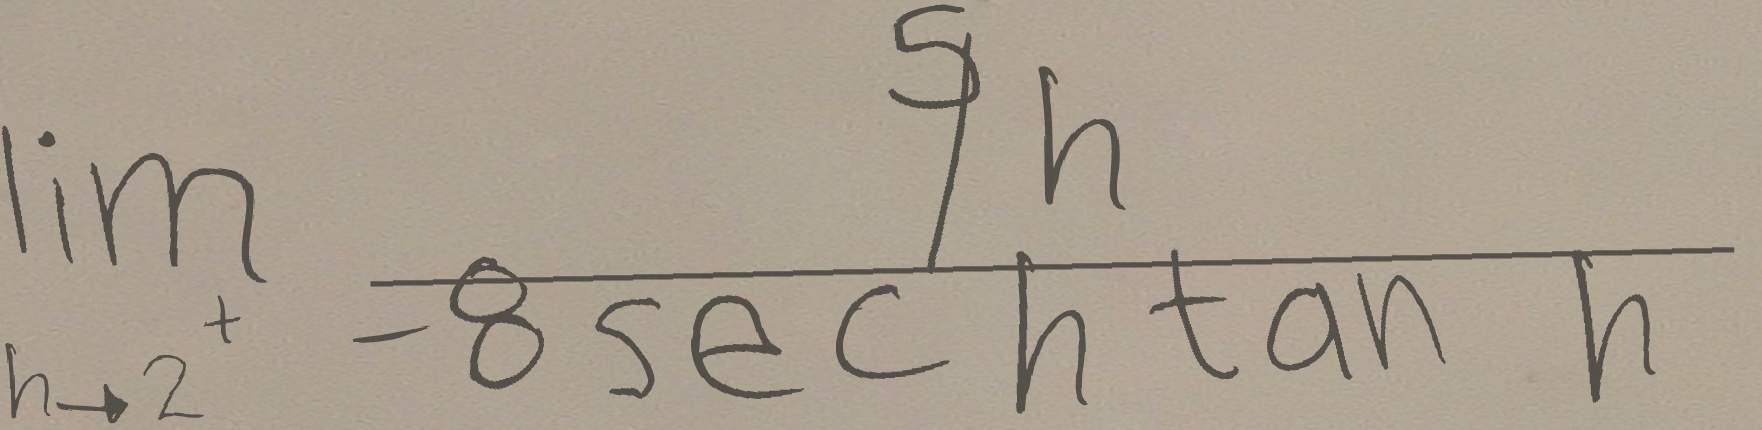 lim h→2⁺ (5/h)/(-8 sec h tan h)